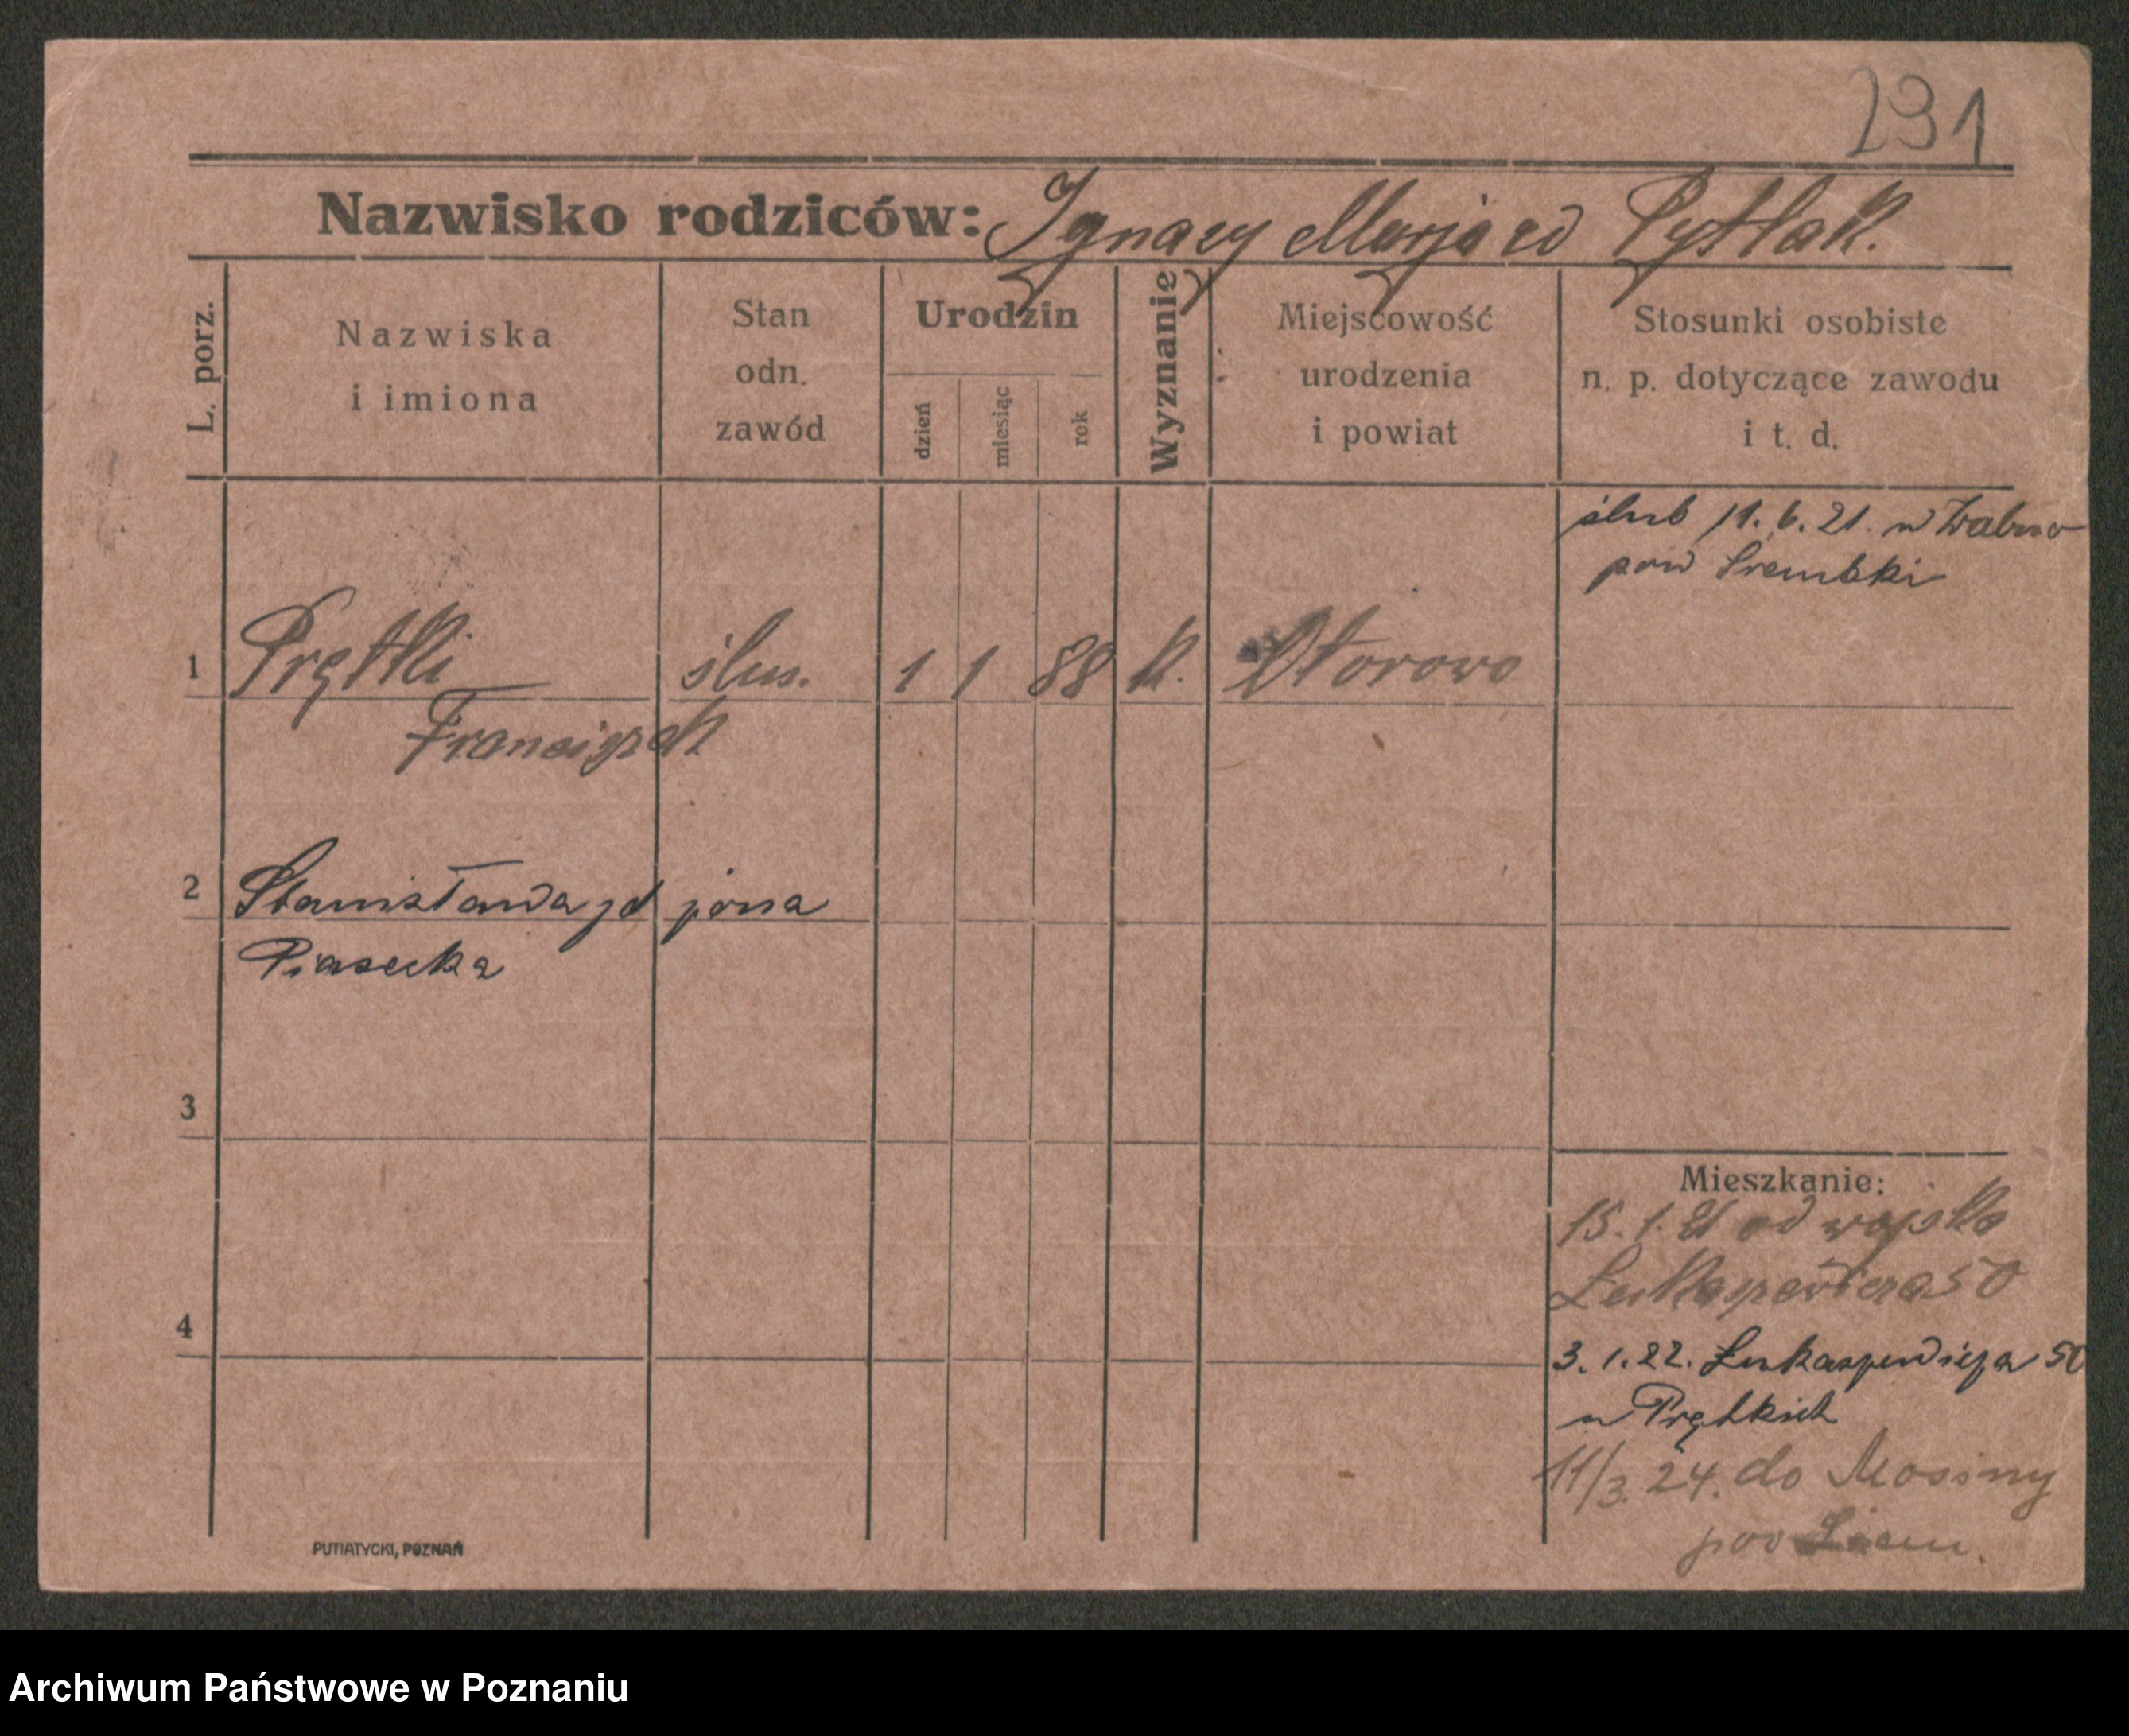 231
Nazwisko rodziców: Ignacy Marja zd Pytlak.
L. porz.
Nazwiska
i imiona
Stan
odn.
zawód
Urodzin
dzień
miesiąc
rok
Wyznanie
Miejscowość
urodzenia
i powiat
Stosunki osobiste
n. p. dotyczące zawodu
i t. d.
ślub 11. 6. 21. w Żabno
pow Śremski
1 Prętki ślus. 1 1 88 k. Otorowo
Franciszek
2 Stanisława zd żona
Piasecka
3
4
Mieszkanie:
15. 1. 21 od wojska
Łukaszewicza 50
3. 1. 22. Łukaszewicza 50
u Prętkich
11/3. 24. do Mosiny
pow Śrem.
PUTIATYCKI, POZNAŃ
Archiwum Państwowe w Poznaniu